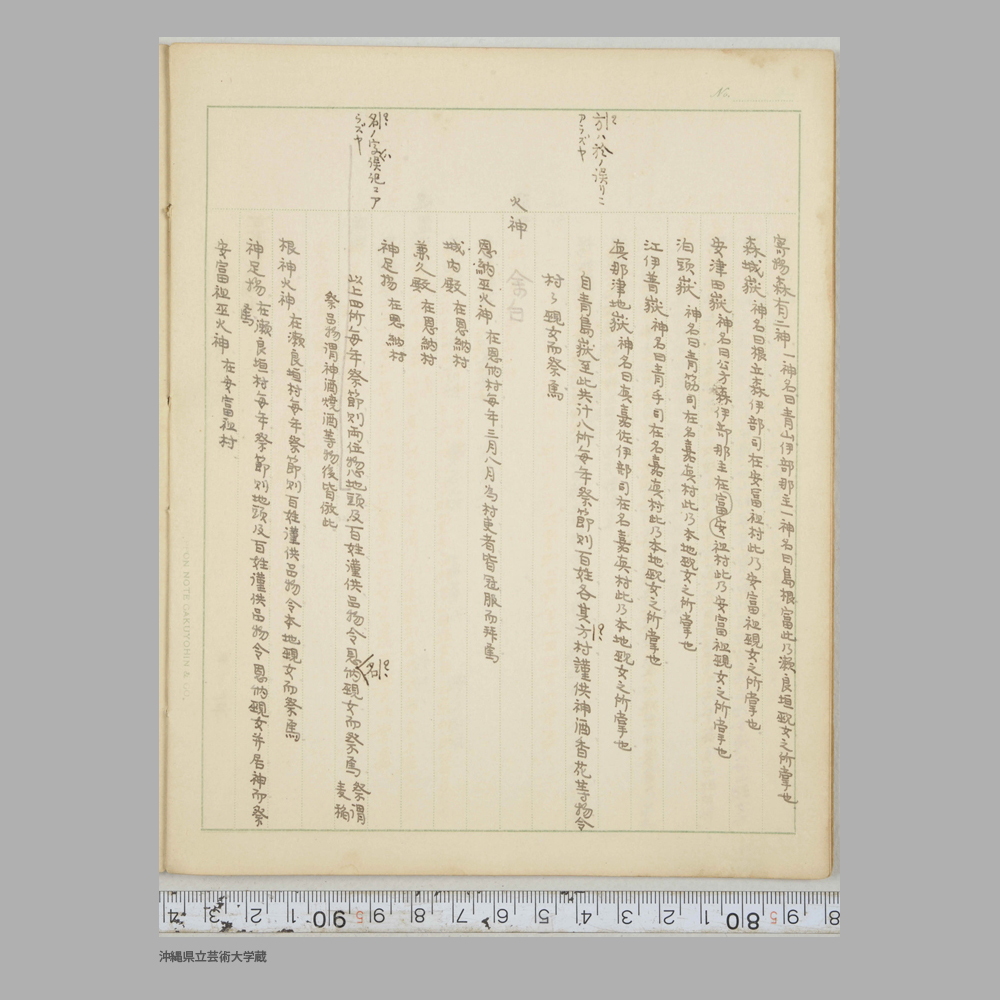 No.
方ハ於ノ誤リニ
アラズヤ
名ノ字誤記ニア
ラズヤ
寄揚森有二神一神名曰青山伊部那主一神名曰島根富此乃瀬良垣覡女之所掌也
森城嶽 神名曰根立森伊部司在安富祖村此乃安富祖覡女之所掌也
安津田嶽 神名曰公方森伊部那主在富安祖村此乃安富祖覡女之所掌也
泊頭嶽 神名曰青筋司在名嘉真村此乃本地覡女之所掌也
江伊善嶽 神名曰青手司在名嘉真村此乃本地覡女之所掌也
真那津地嶽 神名曰真嘉佐伊部司在名嘉真村此乃本地覡女之所掌也
自青島嶽至此共計八所每年祭節則百姓各其方村謹供神酒香花等物令
村々覡女而祭焉
火神
恩納巫火神 在恩納村每年三月八月為村吏者皆冠服而拜焉
城內殿 在恩納村
兼久殿 在恩納村
神足揚 在恩納村
以上四所每年祭節則両位惣地頭及百姓謹供品物令恩納覡女而祭焉 祭謂
麦稲
祭品物謂神酒焼酒等物後皆倣此
根神火神 在瀬良垣村每年祭節則百姓謹供品物令本地覡女而祭焉
神足揚 在瀬良垣村每年祭節則地頭及百姓謹供品物令恩納覡女并居神而祭
焉
安富祖巫火神 在安富祖村
沖縄県立芸術大学蔵